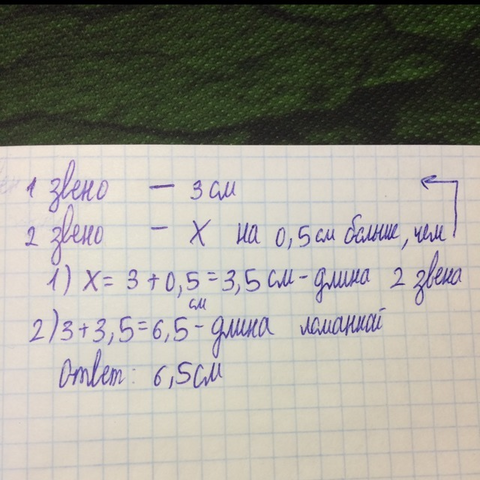 1 звено — 3 см
2 звено — X на 0,5 см больше, чем
1) X = 3 + 0,5 = 3,5 см - длина 2 звена
2) 3 + 3,5 = 6,5 см - длина ломанной
Ответ: 6,5 см